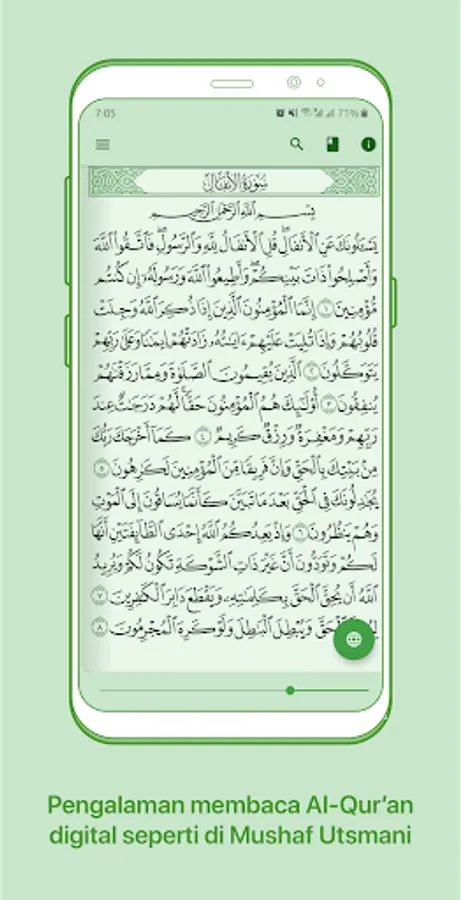 7:05 71%
سُورَةُ الأَنفَالِ
بِسْمِ اللَّهِ الرَّحْمَٰنِ الرَّحِيمِ
يَسْـَٔلُونَكَ عَنِ الْأَنفَالِ ۖ قُلِ الْأَنفَالُ لِلَّهِ وَالرَّسُولِ ۖ فَاتَّقُوا اللَّهَ
وَأَصْلِحُوا ذَاتَ بَيْنِكُمْ ۖ وَأَطِيعُوا اللَّهَ وَرَسُولَهُ إِن كُنتُم
مُّؤْمِنِينَ ١ إِنَّمَا الْمُؤْمِنُونَ الَّذِينَ إِذَا ذُكِرَ اللَّهُ وَجِلَتْ
قُلُوبُهُمْ وَإِذَا تُلِيَتْ عَلَيْهِمْ ءَايَٰتُهُ زَادَتْهُمْ إِيمَٰنًا وَعَلَىٰ رَبِّهِمْ
يَتَوَكَّلُونَ ٢ الَّذِينَ يُقِيمُونَ الصَّلَوٰةَ وَمِمَّا رَزَقْنَٰهُمْ
يُنفِقُونَ ٣ أُولَٰٓئِكَ هُمُ الْمُؤْمِنُونَ حَقًّا ۚ لَّهُمْ دَرَجَٰتٌ عِندَ
رَبِّهِمْ وَمَغْفِرَةٌ وَرِزْقٌ كَرِيمٌ ٤ كَمَا أَخْرَجَكَ رَبُّكَ
مِنۢ بَيْتِكَ بِالْحَقِّ وَإِنَّ فَرِيقًا مِّنَ الْمُؤْمِنِينَ لَكَٰرِهُونَ ٥
يُجَٰدِلُونَكَ فِي الْحَقِّ بَعْدَ مَا تَبَيَّنَ كَأَنَّمَا يُسَاقُونَ إِلَى الْمَوْتِ
وَهُمْ يَنظُرُونَ ٦ وَإِذْ يَعِدُكُمُ اللَّهُ إِحْدَى الطَّآئِفَتَيْنِ أَنَّهَا
لَكُمْ وَتَوَدُّونَ أَنَّ غَيْرَ ذَاتِ الشَّوْكَةِ تَكُونُ لَكُمْ وَيُرِيدُ
اللَّهُ أَن يُحِقَّ الْحَقَّ بِكَلِمَٰتِهِ وَيَقْطَعَ دَابِرَ الْكَٰفِرِينَ ٧
الْحَقَّ وَيُبْطِلَ الْبَٰطِلَ وَلَوْ كَرِهَ الْمُجْرِمُونَ ٨
Pengalaman membaca Al-Qur'an
digital seperti di Mushaf Utsmani